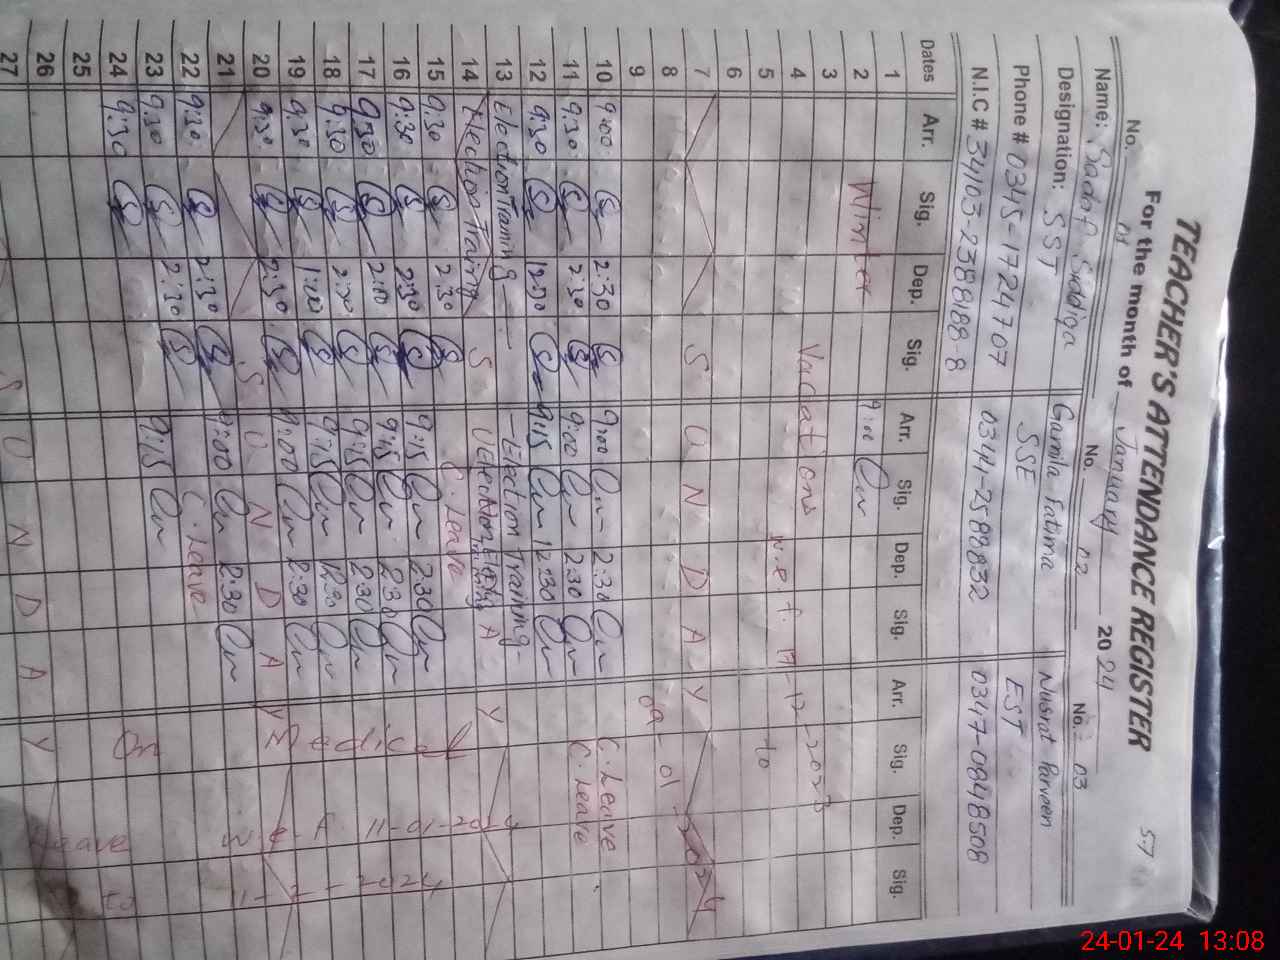 TEACHER'S ATTENDANCE REGISTER
57
For the month of January 2024
No. 01 No. 02 No. 03
Name: Sadaf Siddiqa Gamila Fatima Nusrat Parveen
Designation: SST SSE EST
Phone # 0345-1724707 0344-2588832 0347-0848508
N.I.C # 34103-2388188-8
Dates Arr. Sig. Dep. Sig. Arr. Sig. Dep. Sig. Arr. Sig. Dep. Sig.
1
2 Winter 9:00
3
4 Vacations w.e.f. 17-12-2023
5 to
6
7 S U N D A Y
8 09-01-2024
9
10 9:00 2:30 9:00 2:30 C. Leave
11 9:30 2:30 9:00 2:30 C. Leave
12 9:30 12:30 9:15 12:30
13 Election Training Election Training
14 Election Training S U Election N D A Y
15 9:30 2:30 C. Leave
16 9:30 2:30 9:15 2:30
17 9:30 2:00 9:15 2:30
18 9:30 2:30 9:15 2:30
19 9:30 1:00 9:15 12:30
20 9:30 2:30 9:00 2:30
21 S U N D A Y
22 9:30 2:30 9:00 2:30
23 9:30 2:30 C. Leave
24 9:30 9:15
25
26
27
S U N D A Y
On Medical
Leave w.e.f. 11-01-2024
to 11-2-2024
24-01-24 13:08